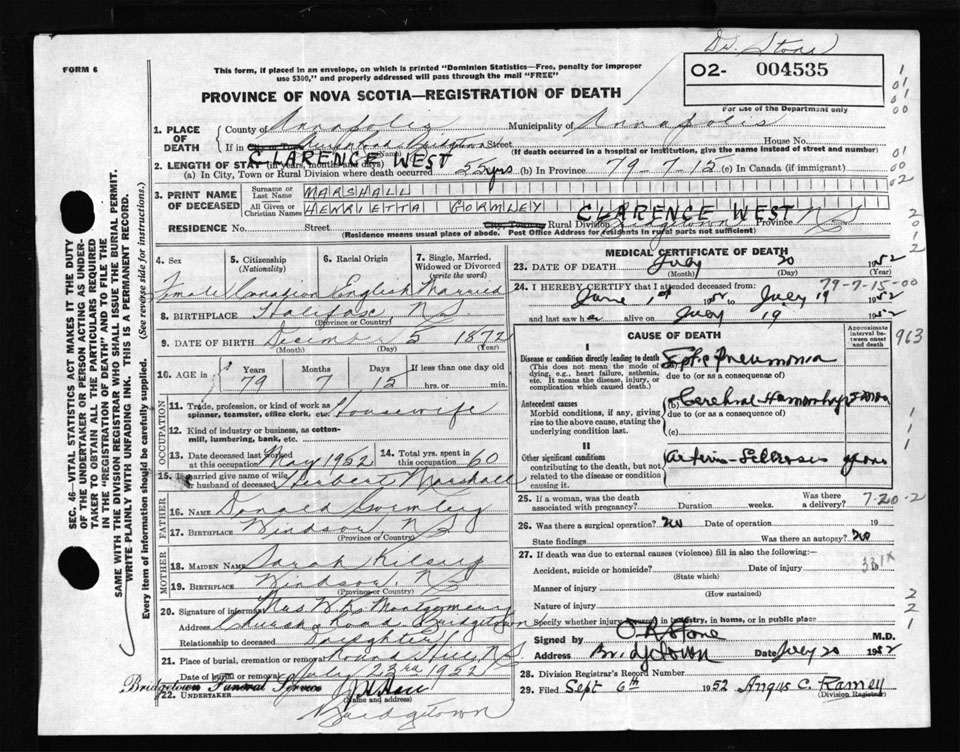 Dr. Stone
FORM 6
This form, if placed in an envelope, on which is printed "Dominion Statistics—Free, penalty for improper
use $300," and properly addressed will pass through the mail "FREE"
02- 004535
For use of the Department only
PROVINCE OF NOVA SCOTIA—REGISTRATION OF DEATH
1. PLACE OF DEATH
County of Annapolis Municipality of Annapolis
If in Street House No.
(If death occurred in a hospital or institution, give the name instead of street and number)
CLARENCE WEST
2. LENGTH OF STAY (in years, months and days)
(a) In City, Town or Rural Division where death occurred 55 yrs (b) In Province 79-7-15 (c) In Canada (if immigrant)
3. PRINT NAME OF DECEASED
Surname or Last Name MARSHALL
All Given or Christian Names HENRIETTA GORMLEY
CLARENCE WEST
RESIDENCE No. Street City, Town or Rural Division Bridgetown Province N S
(Residence means usual place of abode. Post Office Address for residents in rural parts not sufficient)
4. Sex
Female
5. Citizenship (Nationality)
Canadian
6. Racial Origin
English
7. Single, Married, Widowed or Divorced (write the word)
Married
8. BIRTHPLACE Halifax, N.S.
(Province or Country)
9. DATE OF BIRTH December 5 1872
(Month) (Day) (Year)
10. AGE Years 79 Months 7 Days 15 If less than one day
hrs. or min.
OCCUPATION
11. Trade, profession, or kind of work as
spinner, teamster, office clerk, etc. Housewife
12. Kind of industry or business, as cotton-
mill, lumbering, bank, etc.
13. Date deceased last worked
at this occupation May 1952
14. Total yrs. spent in
this occupation 60
15. If married give name of wife
or husband of deceased Herbert Marshall
FATHER
16. NAME Donald Gormley
17. BIRTHPLACE Windsor, N S
(Province or Country)
MOTHER
18. MAIDEN NAME Sarah
19. BIRTHPLACE Windsor, N S
(Province or Country)
20. Signature of informant Mrs Montgomery
Address Church Road Bridgetown
Relationship to deceased Daughter
21. Place of burial, cremation or removal Round Hill, N S
Date of burial or removal July 23rd 1952
Bridgetown Funeral Service
22. UNDERTAKER
(Name and address)
Bridgetown
MEDICAL CERTIFICATE OF DEATH
23. DATE OF DEATH July 20 1952
(Month) (Day) (Year)
79-7-15-00
24. I HEREBY CERTIFY that I attended deceased from:
June 1st 1952 to July 19 1952
and last saw her alive on July 19 1952
CAUSE OF DEATH
Approximate interval between onset and death
963
I
Disease or condition directly leading to death
(This does not mean the mode of
dying, e.g., heart failure, asthenia,
etc. It means the disease, injury, or
complication which caused death.)
Pneumonia
due to (or as a consequence of)
Antecedent causes
Morbid conditions, if any, giving
rise to the above cause, stating the
underlying condition last.
(b) Cerebral Hemorrhage
due to (or as a consequence of)
(c)
II
Other significant conditions
contributing to the death, but not
related to the disease or condition
causing it.
Arterio-Sclerosis years
25. If a woman, was the death
associated with pregnancy? Duration weeks. Was there
a delivery?
7-20-2
26. Was there a surgical operation? no Date of operation 19
State findings Was there an autopsy? no
27. If death was due to external causes (violence) fill in also the following:—
Accident, suicide or homicide? Date of injury
(State which)
331X
Manner of injury
(How sustained)
Nature of injury
Specify whether injury occurred in industry, in home, or in public place
Signed by O R Stone M.D.
Address Bridgetown Date July 20 1952
28. Division Registrar's Record Number
29. Filed Sept 6th 1952 Angus C. Ramey
(Division Registrar)
SEC. 46—VITAL STATISTICS ACT MAKES IT THE DUTY
OF THE UNDERTAKER OR PERSON ACTING AS UNDER-
TAKER TO OBTAIN ALL THE PARTICULARS REQUIRED
IN THE "REGISTRATION OF DEATH" AND TO FILE THE
SAME WITH THE DIVISION REGISTRAR WHO SHALL ISSUE THE BURIAL PERMIT.
WRITE PLAINLY WITH UNFADING INK. THIS IS A PERMANENT RECORD.
Every item of information should be carefully supplied. (See reverse side for instructions.)